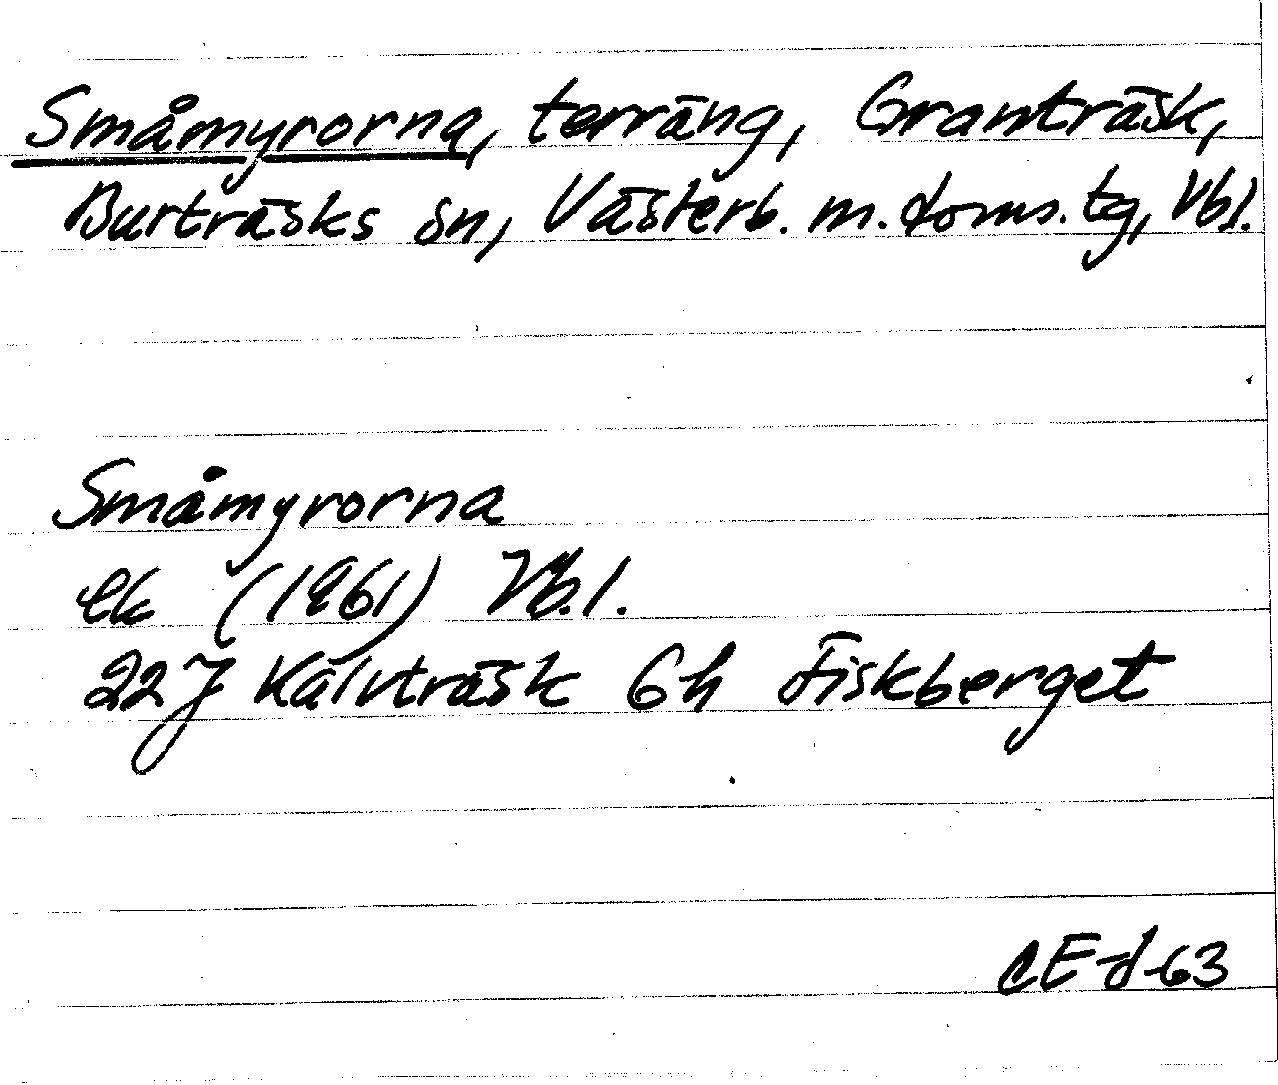 Småmyrorna, terräng, Granträsk,
Burträsks sn, Västerb. m. doms. tg, Vbl.
Småmyrorna
ek (1961) Vb.l.
22 J Kalvträsk 6h Fiskberget
CE-d-63